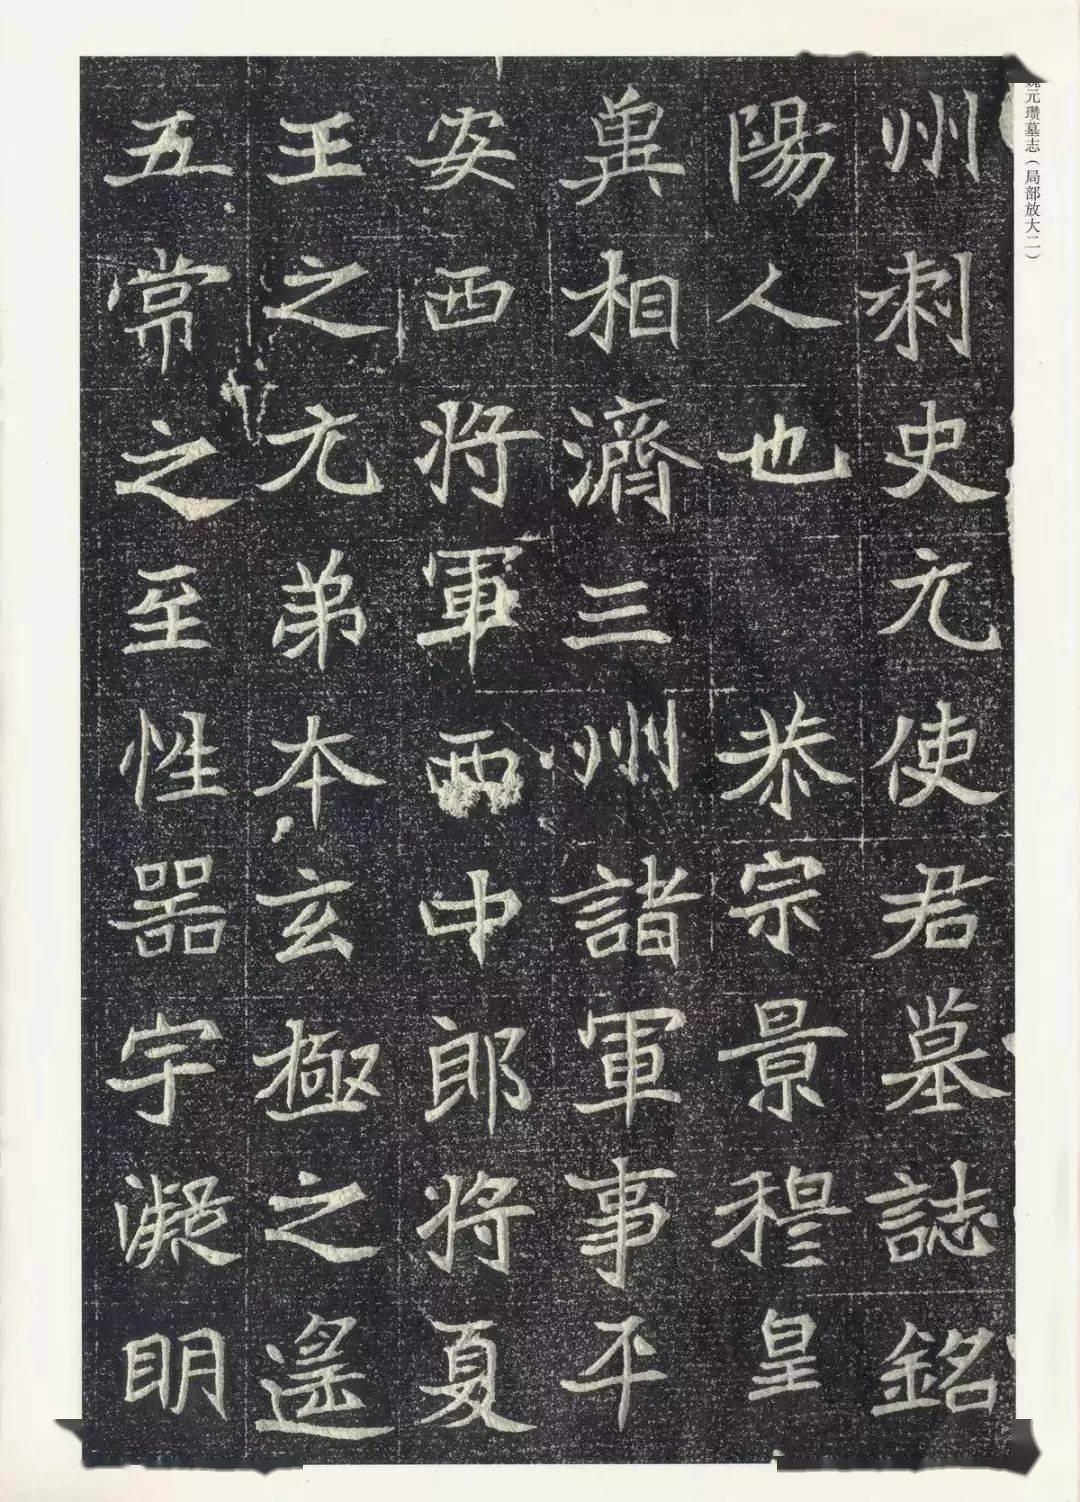 魏元瓒墓志（局部放大二）
州刺史元使君墓誌銘
陽人也　恭宗景穆皇
兾相濟三州諸軍事平
安西将軍西中郎将夏
王之元弟本玄極之遥
五常之至性器宇凝明